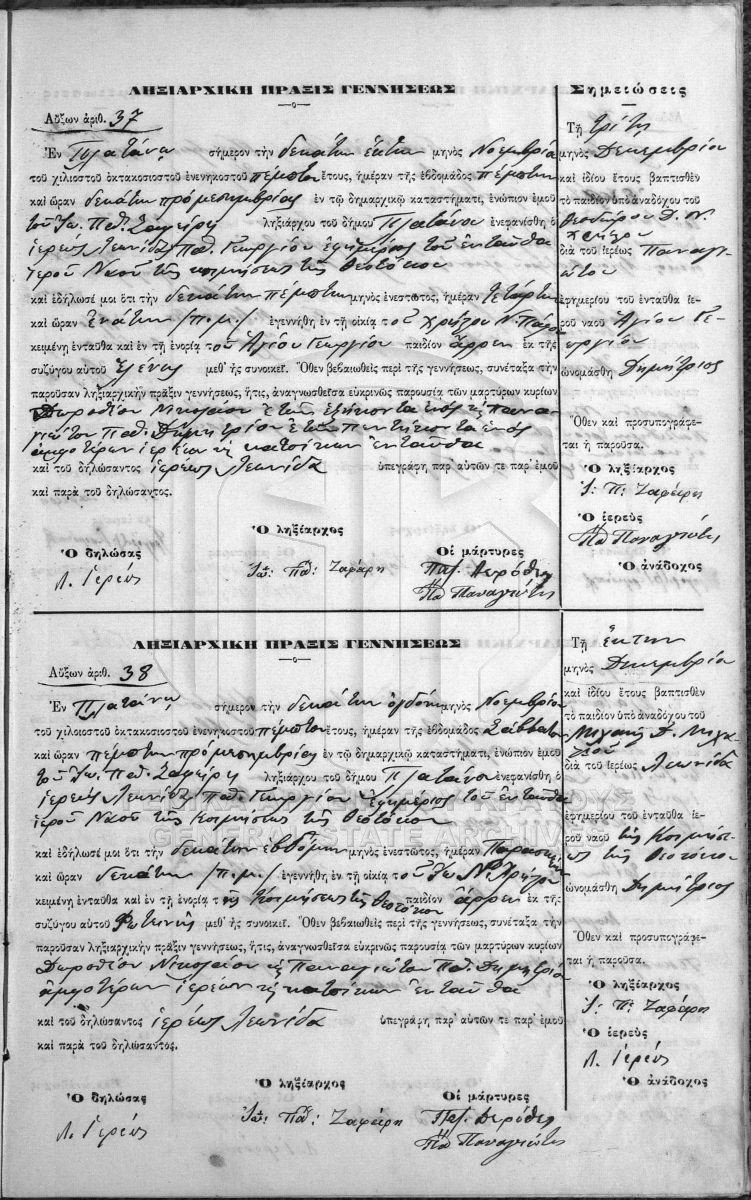 ΛΗΞΙΑΡΧΙΚΗ ΠΡΑΞΙΣ ΓΕΝΝΗΣΕΩΣ
Αὔξων ἀριθ. 37
Ἐν Πλατάνῳ σήμερον τὴν δεκάτην ἕκτην μηνὸς Νοεμβρίου
τοῦ χιλιοστοῦ ὀκτακοσιοστοῦ ἐνενηκοστοῦ πέμπτου ἔτους, ἡμέραν τῆς ἑβδομάδος πέμπτην
καὶ ὥραν δεκάτην πρό μεσημβρίας ἐν τῷ δημαρχικῷ καταστήματι, ἐνώπιον ἐμοῦ
τοῦ Ἰω. Παπ. Ζαφείρη ληξιάρχου τοῦ δήμου Πλατάνου ἐνεφανίσθη ὁ
ἱερεύς Λεωνίδας Παπ. Γεωργίου ἐφημέριος τοῦ ἐνταῦθα
Ἱεροῦ Ναοῦ τῆς κοιμήσεως τῆς Θεοτόκου
καὶ ἐδήλωσέ μοι ὅτι τὴν δεκάτην πέμπτην μηνὸς ἐνεστῶτος, ἡμέραν τετάρτην
καὶ ὥραν ἐνάτην /π.μ./ ἐγεννήθη ἐν τῇ οἰκίᾳ τοῦ Χρήστου Ν.
κειμένῃ ἐνταῦθα καὶ ἐν τῇ ἐνορίᾳ τοῦ Ἁγίου Γεωργίου παιδίον ἄρρεν ἐκ τῆς
συζύγου αὐτοῦ Ἑλένης μεθ᾽ ἧς συνοικεῖ. Ὅθεν βεβαιωθεὶς περὶ τῆς γεννήσεως, συνέταξα τὴν
παροῦσαν ληξιαρχικὴν πρᾶξιν γεννήσεως, ἥτις, ἀναγνωσθεῖσα εὐκρινῶς παρουσίᾳ τῶν μαρτύρων κυρίων
Δωροθέου Νικολάου ἐτῶν ἑξήκοντα ἑνός κ Πανα
γιώτου Παπ. Δημητρίου ἐτῶν πεντήκοντα ἑνός
ἀμφοτέρων ἱερέων κ κατοίκων ἐνταῦθα
καὶ τοῦ δηλώσαντος ἱερέως Λεωνίδα ὑπεγράφη παρ᾽ αὐτῶν τε παρ᾽ ἐμοῦ
καὶ παρὰ τοῦ δηλώσαντος.
Ὁ ληξίαρχος
Ὁ δηλώσας Οἱ μάρτυρες
Λ. Ἱερεύς Ἰω: Παπ: Ζαφείρη Παπ. Δωρόθεος
Πα Παναγιώτης
Σημειώσεις
Τῇ τρίτῃ
μηνὸς Δεκεμβρίου
καὶ ἰδίου ἔτους βαπτισθὲν
τὸ παιδίον ὑπὸ ἀναδόχου τοῦ
Θεοδώρου Δ. Ν.
διὰ τοῦ ἱερέως Παναγι
ώτου
ἐφημερίου τοῦ ἐνταῦθα ἱε-
ροῦ ναοῦ Ἁγίου Γε
ωργίου
ὠνομάσθη Δημήτριος
Ὅθεν καὶ προσυπογράφε-
ται ἡ παροῦσα.
Ὁ ληξίαρχος
Ἰ: Π: Ζαφείρη
Ὁ ἱερεὺς
Πα Παναγιώτης
Ὁ ἀνάδοχος
ΛΗΞΙΑΡΧΙΚΗ ΠΡΑΞΙΣ ΓΕΝΝΗΣΕΩΣ
Αὔξων ἀριθ. 38
Ἐν Πλατάνῳ σήμερον τὴν δεκάτην ὀγδόην μηνὸς Νοεμβρίου
τοῦ χιλιοστοῦ ὀκτακοσιοστοῦ ἐνενηκοστοῦ πέμπτου ἔτους, ἡμέραν τῆς ἑβδομάδος Σάββατον
καὶ ὥραν πέμπτην πρό μεσημβρίας ἐν τῷ δημαρχικῷ καταστήματι, ἐνώπιον ἐμοῦ
τοῦ Ἰω. Παπ. Ζαφείρη ληξιάρχου τοῦ δήμου Πλατάνου ἐνεφανίσθη ὁ
ἱερεύς Λεωνίδας Παπ. Γεωργίου ἐφημέριος τοῦ ἐνταῦθα
ἱεροῦ Ναοῦ τῆς Κοιμήσεως τῆς Θεοτόκου
καὶ ἐδήλωσέ μοι ὅτι τὴν δεκάτην ἑβδόμην μηνὸς ἐνεστῶτος, ἡμέραν Παρασκευήν
καὶ ὥραν δεκάτην /π.μ./ ἐγεννήθη ἐν τῇ οἰκίᾳ τοῦ Ἰω Ν.
κειμένῃ ἐνταῦθα καὶ ἐν τῇ ἐνορίᾳ τῆς Κοιμήσεως τῆς Θεοτόκου παιδίον ἄρρεν ἐκ τῆς
συζύγου αὐτοῦ Φωτεινῆς μεθ᾽ ἧς συνοικεῖ. Ὅθεν βεβαιωθεὶς περὶ τῆς γεννήσεως, συνέταξα τὴν
παροῦσαν ληξιαρχικὴν πρᾶξιν γεννήσεως, ἥτις, ἀναγνωσθεῖσα εὐκρινῶς παρουσίᾳ τῶν μαρτύρων κυρίων
Δωροθέου Νικολάου κ Παναγιώτου Παπ. Δημητρίου
ἀμφοτέρων ἱερέων κ κατοίκων ἐνταῦθα
καὶ τοῦ δηλώσαντος ἱερέως Λεωνίδα ὑπεγράφη παρ᾽ αὐτῶν τε παρ᾽ ἐμοῦ
καὶ παρὰ τοῦ δηλώσαντος.
Ὁ ληξίαρχος
Ὁ δηλώσας Οἱ μάρτυρες
Λ. Ἱερεύς Ἰω: Παπ: Ζαφείρη Παπ. Δωρόθεος
Πα Παναγιώτης
Τῇ ἕκτῃ
μηνὸς Δεκεμβρίου
καὶ ἰδίου ἔτους βαπτισθὲν
τὸ παιδίον ὑπὸ ἀναδόχου τοῦ
διὰ τοῦ ἱερέως Λεωνίδα
ἐφημερίου τοῦ ἐνταῦθα ἱε-
ροῦ ναοῦ τῆς Κοιμήσε
ως τῆς Θεοτόκου
ὠνομάσθη Δημήτριος
Ὅθεν καὶ προσυπογράφε-
ται ἡ παροῦσα.
Ὁ ληξίαρχος
Ἰ: Π: Ζαφείρη
Ὁ ἱερεὺς
Λ. Ἱερεύς
Ὁ ἀνάδοχος
GENERAL STATE ARCHIVES